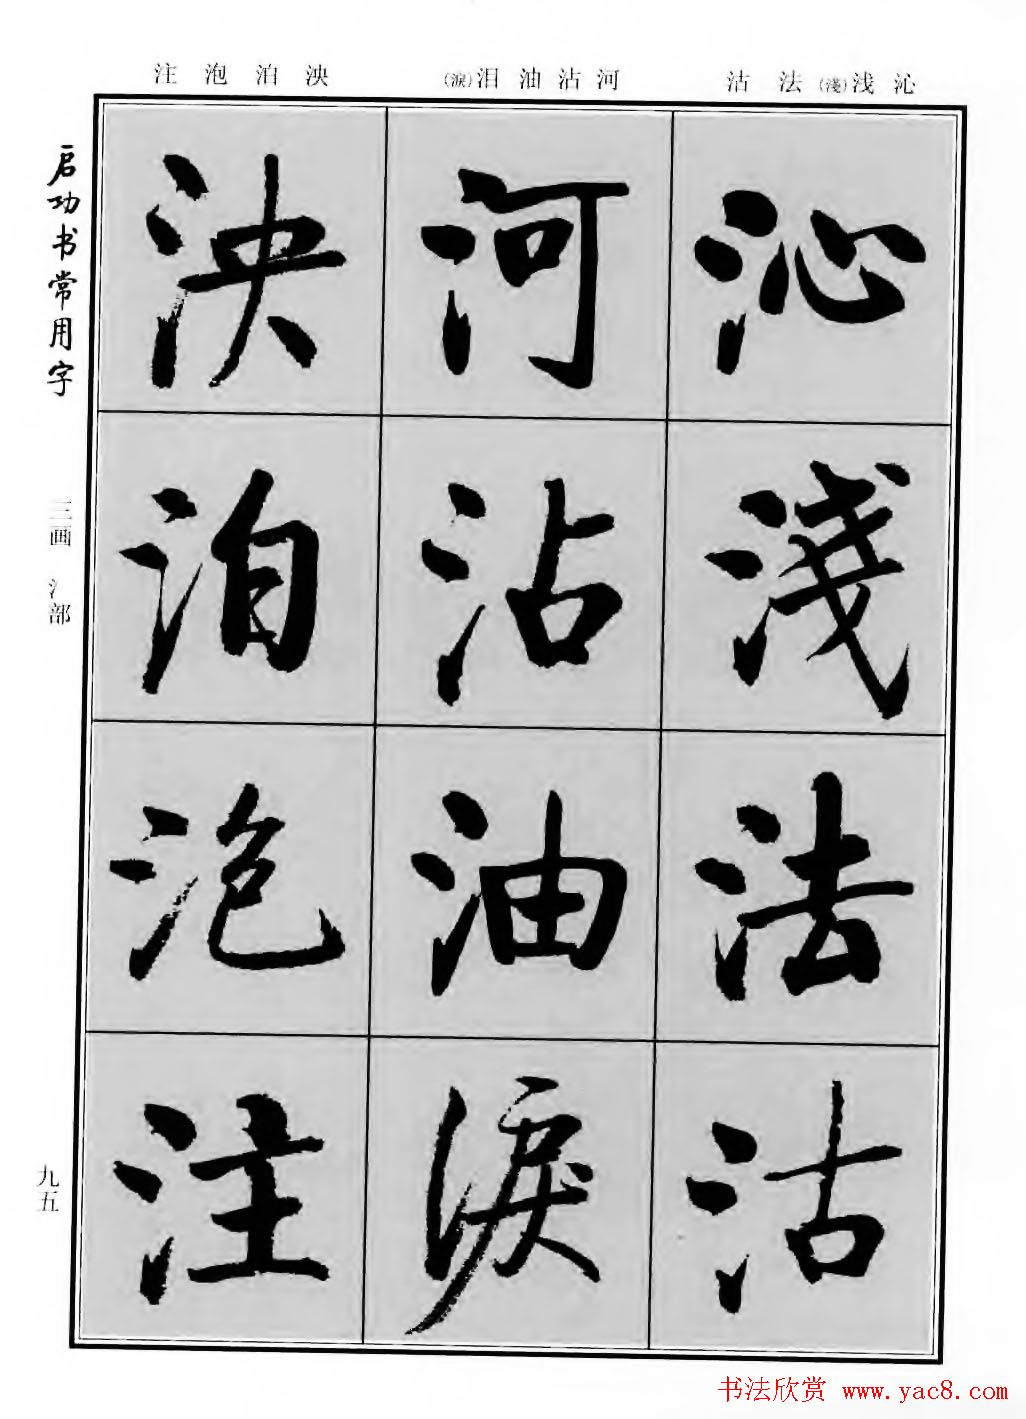 沁浅(淺)法沽
河沾油泪(淚)
泱泊泡注
沁淺法沽
河沾油淚
泱泊泡注
启功书常用字
三画 氵部
九五
书法欣赏 www.yac8.com